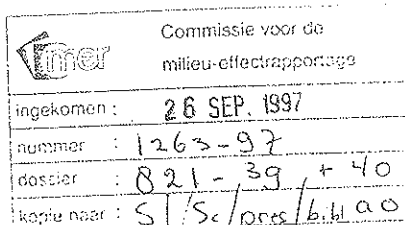 Commissie voor de
mer milieu-effectrapportage
ingekomen : 26 SEP. 1997
nummer : 1263-97
dossier : 821-39, + 40
kopie naar : S1/Sc/pres/bibl ao